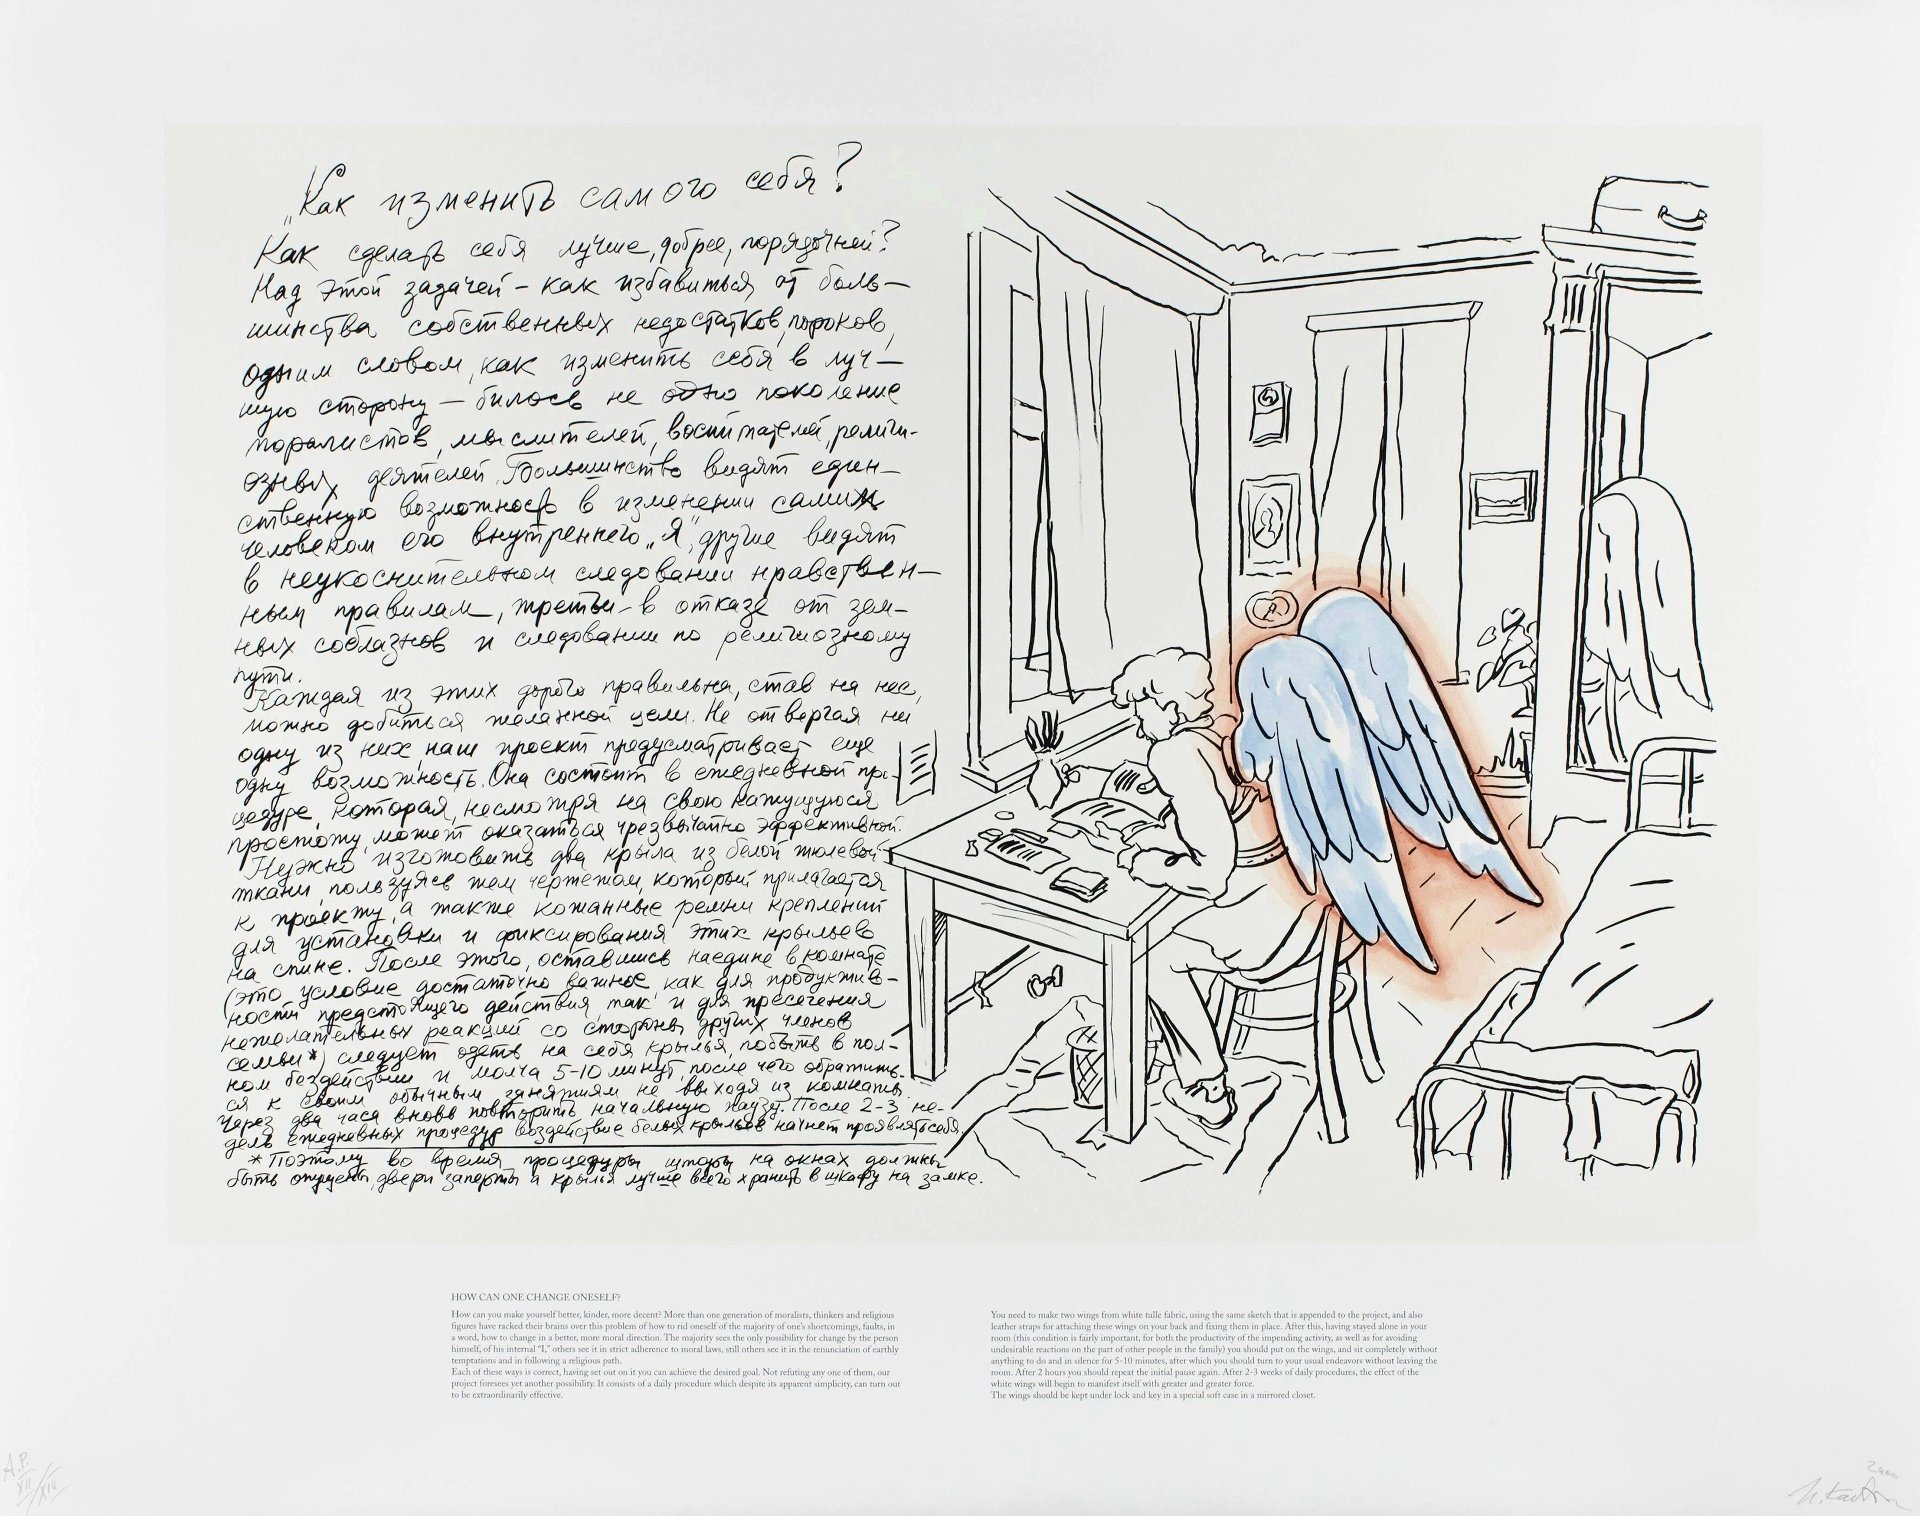 „Как изменить самого себя?
Как сделать себя лучше, добрее, порядочней?
Над этой задачей – как избавиться от боль-
шинства собственных недостатков, пороков,
одним словом, как изменить себя в луч-
шую сторону – билось не одно поколение
моралистов, мыслителей, воспитателей, религи-
озных деятелей. Большинство видят един-
ственную возможность в изменении самим
человеком его внутреннего „Я", другие видят
в неукоснительном следовании нравствен-
ным правилам, третьи – в отказе от зем-
ных соблазнов и следовании по религиозному
пути.
Каждая из этих дорог правильна, став на нее,
можно добиться желанной цели. Не отвергая ни
одну из них, наш проект предусматривает еще
одну возможность. Она состоит в ежедневной про-
цедуре, которая, несмотря на свою кажущуюся
простоту, может оказаться чрезвычайно эффективной.
Нужно изготовить два крыла из белой тюлевой
ткани, пользуясь тем чертежом, который прилагается
к проекту, а также кожанные ремни креплений
для установки и фиксирования этих крыльев
на спине. После этого, оставшись наедине в комнате
(это условие достаточно важное как для продуктив-
ности предстоящего действия, так и для пресечения
нежелательных реакций со стороны других членов
семьи*) следует одеть на себя крылья, побыть в пол-
ном бездействии и молча 5-10 минут, после чего обратить-
ся к своим обычным занятиям не выходя из комнаты.
Через два часа вновь повторить начальную паузу. После 2-3 не-
дель ежедневных процедур воздействие белых крыльев начнет проявлять себя.
* Поэтому во время процедуры шторы на окнах должны
быть опущены, двери заперты и крылья лучше всего хранить в шкафу на замке.
HOW CAN ONE CHANGE ONESELF?
How can you make yourself better, kinder, more decent? More than one generation of moralists, thinkers and religious
figures have racked their brains over this problem of how to rid oneself of the majority of one's shortcomings, faults, in
a word, how to change in a better, more moral direction. The majority sees the only possibility for change by the person
himself, of his internal "I," others see it in strict adherence to moral laws, still others see it in the renunciation of earthly
temptations and in following a religious path.
Each of these ways is correct, having set out on it you can achieve the desired goal. Not refuting any one of them, our
project foresees yet another possibility. It consists of a daily procedure which despite its apparent simplicity, can turn out
to be extraordinarily effective.
You need to make two wings from white tulle fabric, using the same sketch that is appended to the project, and also
leather straps for attaching these wings on your back and fixing them in place. After this, having stayed alone in your
room (this condition is fairly important, for both the productivity of the impending activity, as well as for avoiding
undesirable reactions on the part of other people in the family) you should put on the wings, and sit completely without
anything to do and in silence for 5-10 minutes, after which you should turn to your usual endeavors without leaving the
room. After 2 hours you should repeat the initial pause again. After 2-3 weeks of daily procedures, the effect of the
white wings will begin to manifest itself with greater and greater force.
The wings should be kept under lock and key in a special soft case in a mirrored closet.
A.P.
XII/XIV
2000